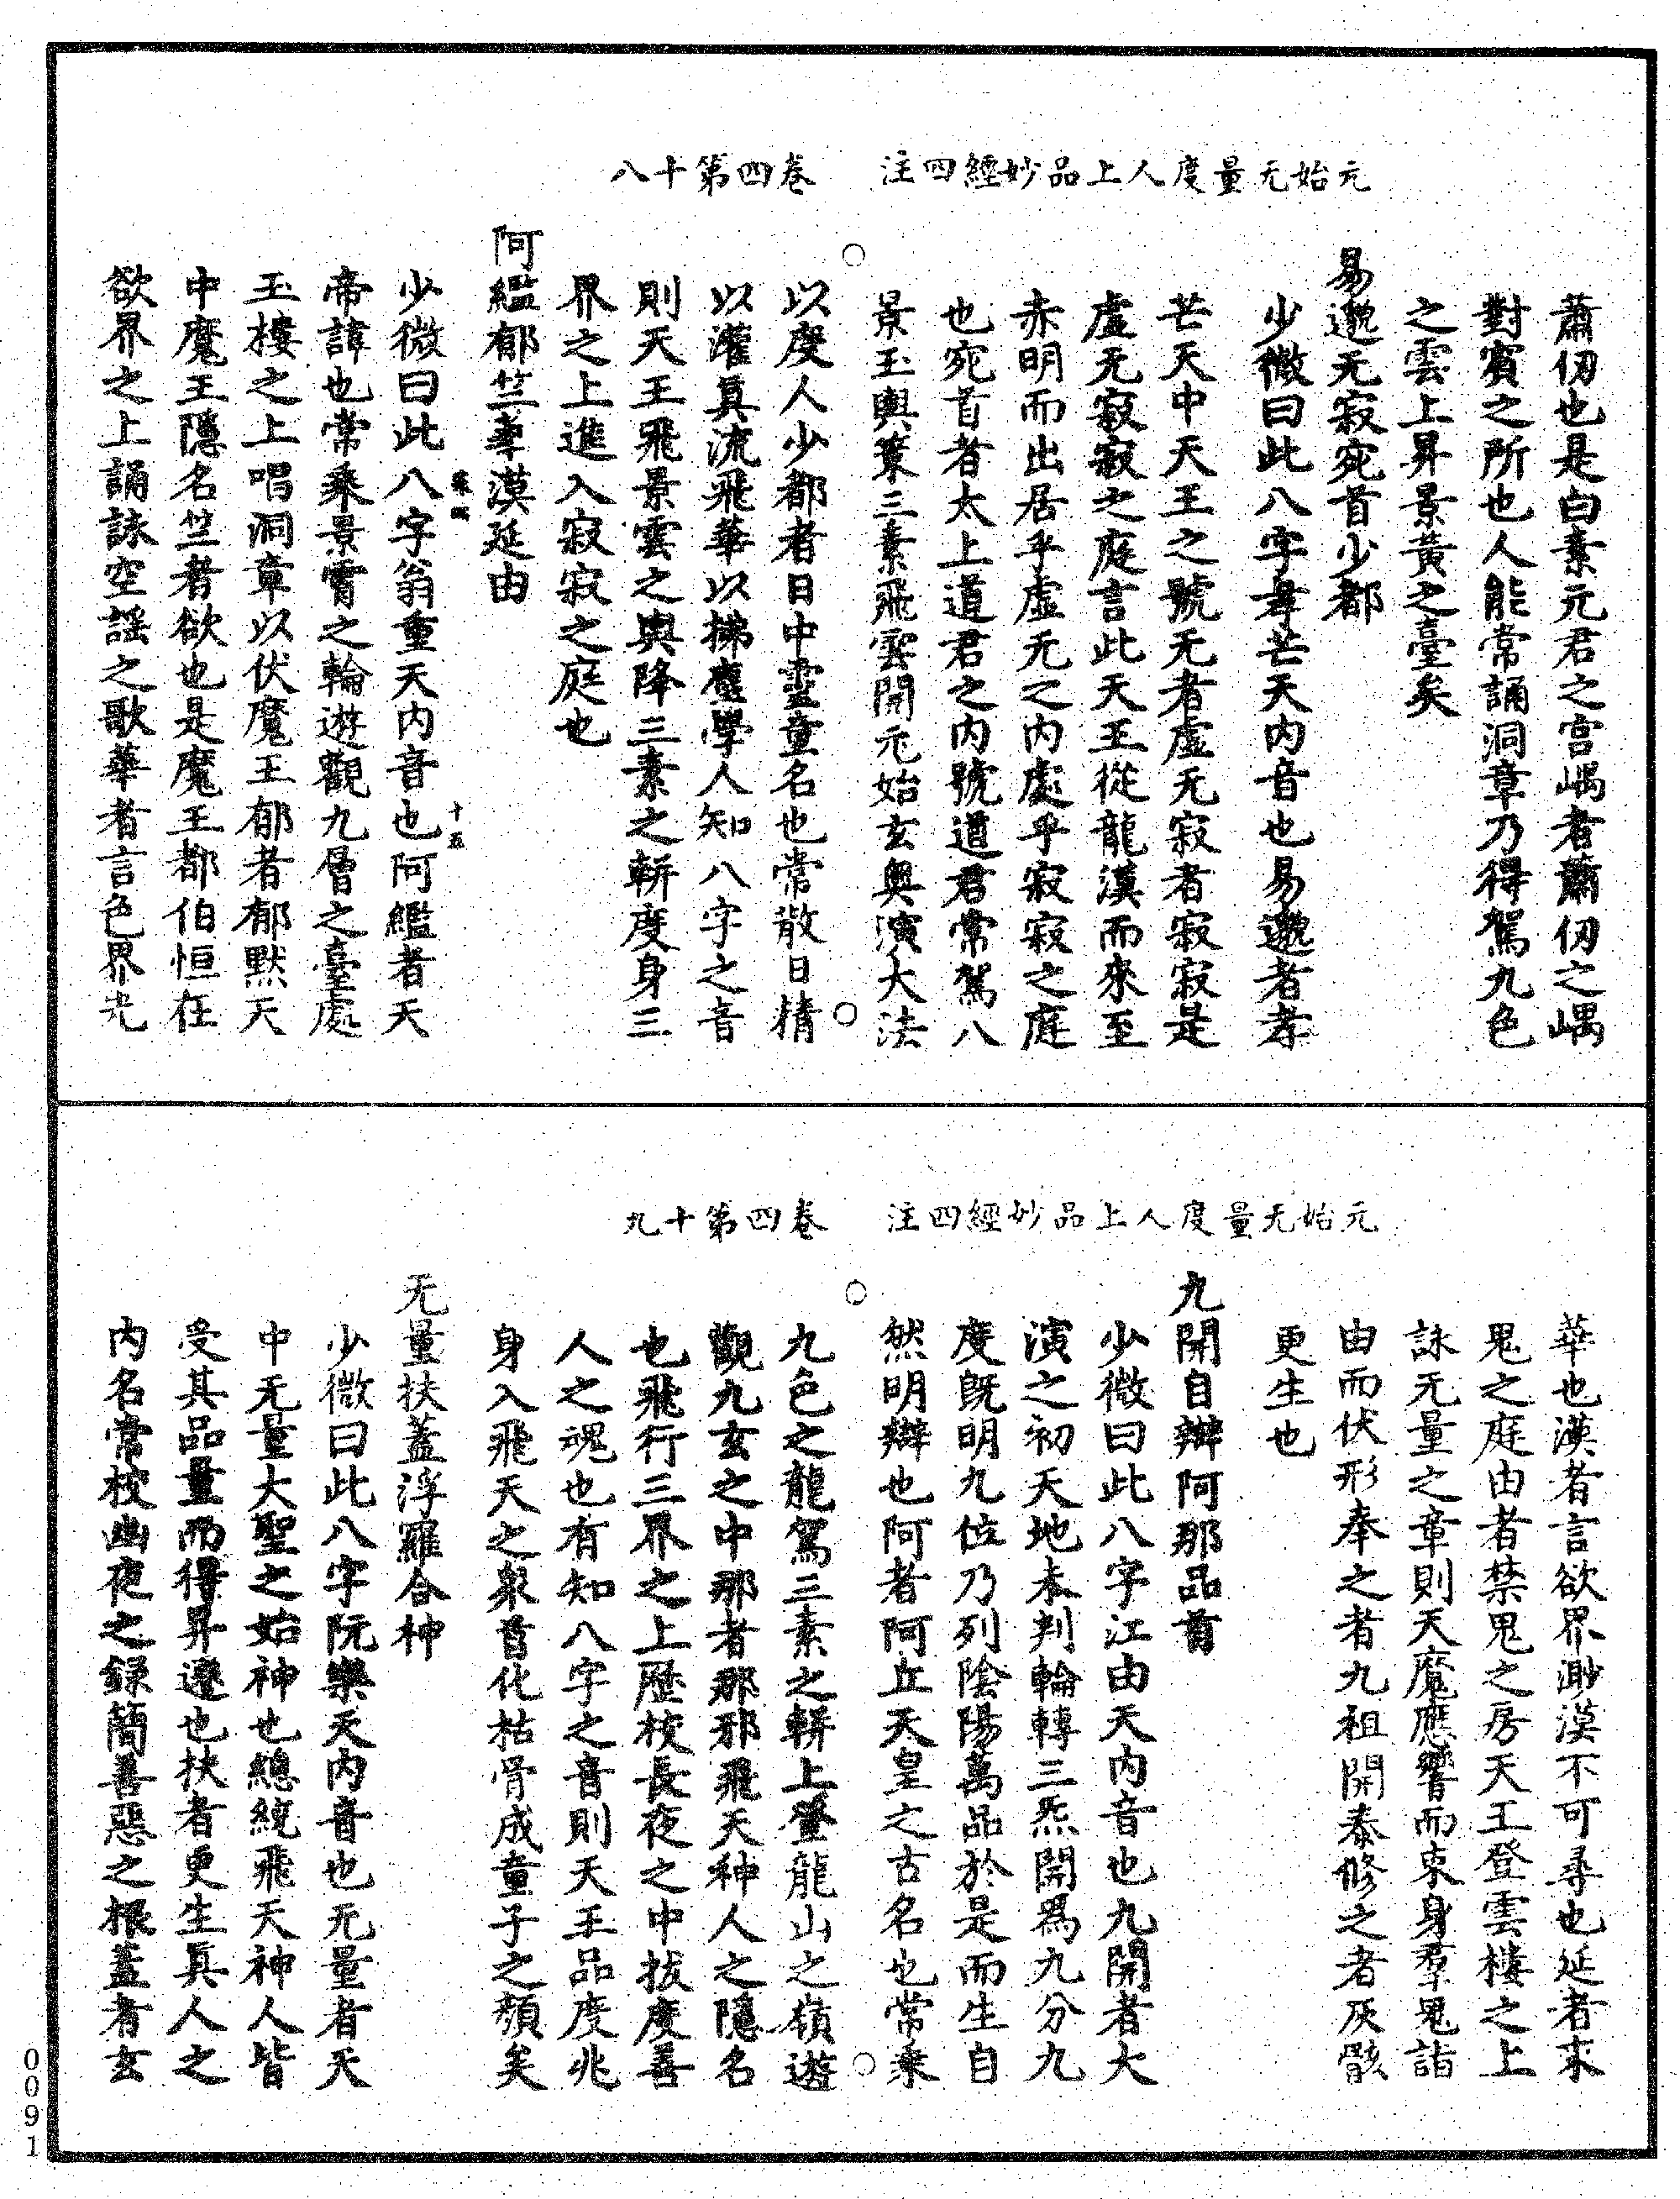 元始无量度人上品妙經四注　卷四第十八
蕭仞也是白素元君之宮嵎者蕭仞之嵎
對賓之所也人能常誦洞章乃得駕九色
之雲上昇景黃之臺矣
易邈无寂宛首少都
少微曰此八字孝芒天内音也易邈者孝
芒天中天王之號无者虛无寂者寂寂是
虛无寂寂之庭言此天王從龍漢而來至
赤明而出居乎虛无之内處乎寂寂之庭
也宛首者太上道君之内號道君常駕八
景玉輿策三素飛雲開元始玄奥演大法
以度人少都者日中靈童名也常散日精
以灌真流飛華以拂塵學人知八字之音
則天王飛景雲之輿降三素之輧度身三
界之上進入寂寂之庭也
阿繿郁竺華漠延由
少微曰此八字翁重天内音也阿繿者天
帝諱也常乘景霄之輪遊觀九層之臺處
玉樓之上唱洞章以伏魔王郁者郁默天
中魔王隱名竺者欲也是魔王都伯恒在
欲界之上誦詠空謡之歌華者言色界光
十五
元始无量度人上品妙經四注　卷四第十九
華也漠者言欲界渺漠不可尋也延者求
鬼之庭由者禁鬼之房天王登雲樓之上
詠无量之章則天魔應響而束身羣鬼詣
由而伏形奉之者九祖開泰修之者灰骸
更生也
九開自辯阿那品首
少微曰此八字江由天内音也九開者大
演之初天地未判輪轉三炁開爲九分九
度既明九位乃列陰陽萬品於是而生自
然明辯也阿者阿丘天皇之古名也常乘
九色之龍駕三素之輧上登龍山之嶺遊
觀九玄之中那者那邪飛天神人之隱名
也飛行三界之上歷校長夜之中拔度善
人之魂也有知八字之音則天王品度兆
身入飛天之泉首化枯骨成童子之顏矣
无量扶蓋浮羅合神
少微曰此八字阮樂天内音也无量者天
中无量大聖之始神也總統飛天神人皆
受其品量而得昇遷也扶者更生真人之
内名常校幽夜之録簡善惡之根蓋者玄
0091